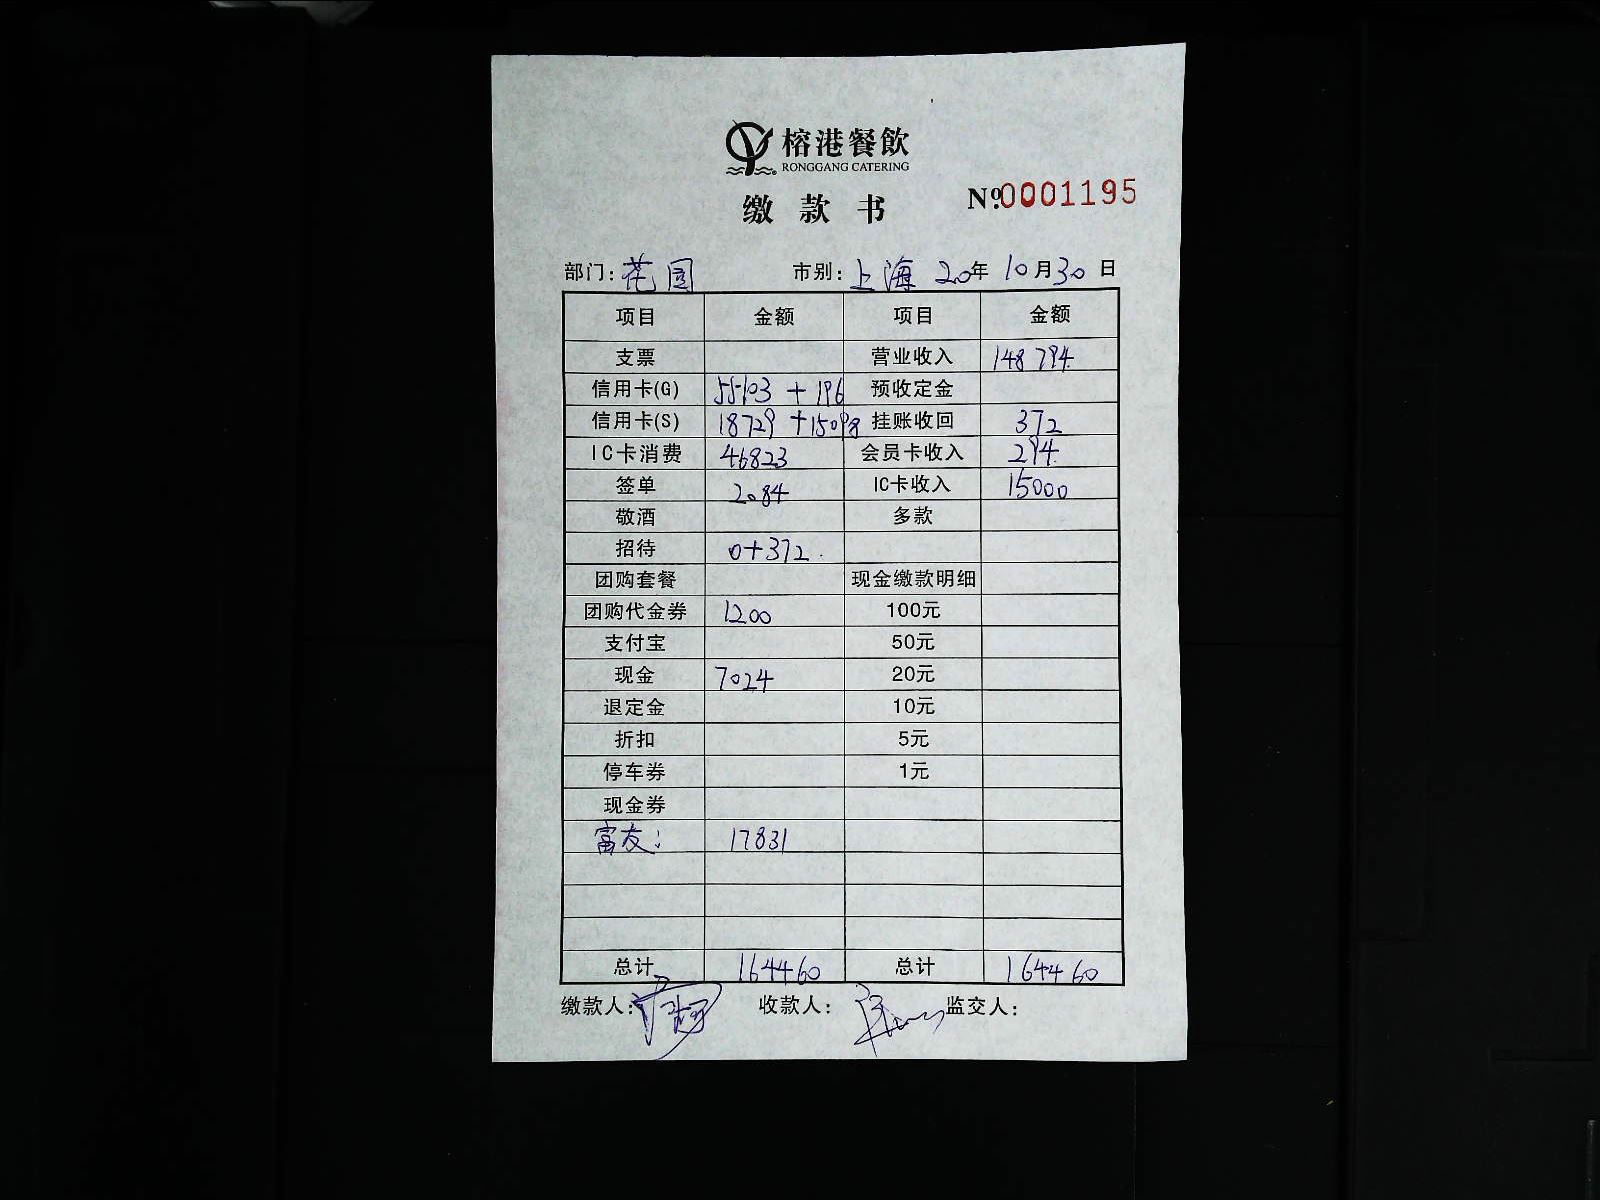 榕港餐飲
RONGGANG CATERING
缴款书
Nº:0001195
部门:花园 市别:上海 20年10月30日
项目 金额 项目 金额
支票 营业收入 148794
信用卡(G) 55103+196 预收定金
信用卡(S) 18729+15098 挂账收回 372
IC卡消费 46823 会员卡收入 294
签单 2084 IC卡收入 15000
敬酒 多款
招待 0+372
团购套餐 现金缴款明细
团购代金券 1200 100元
支付宝 50元
现金 7024 20元
退定金 10元
折扣 5元
停车券 1元
现金券
富友: 17831
总计 164460 总计 164460
缴款人: 收款人: 监交人: